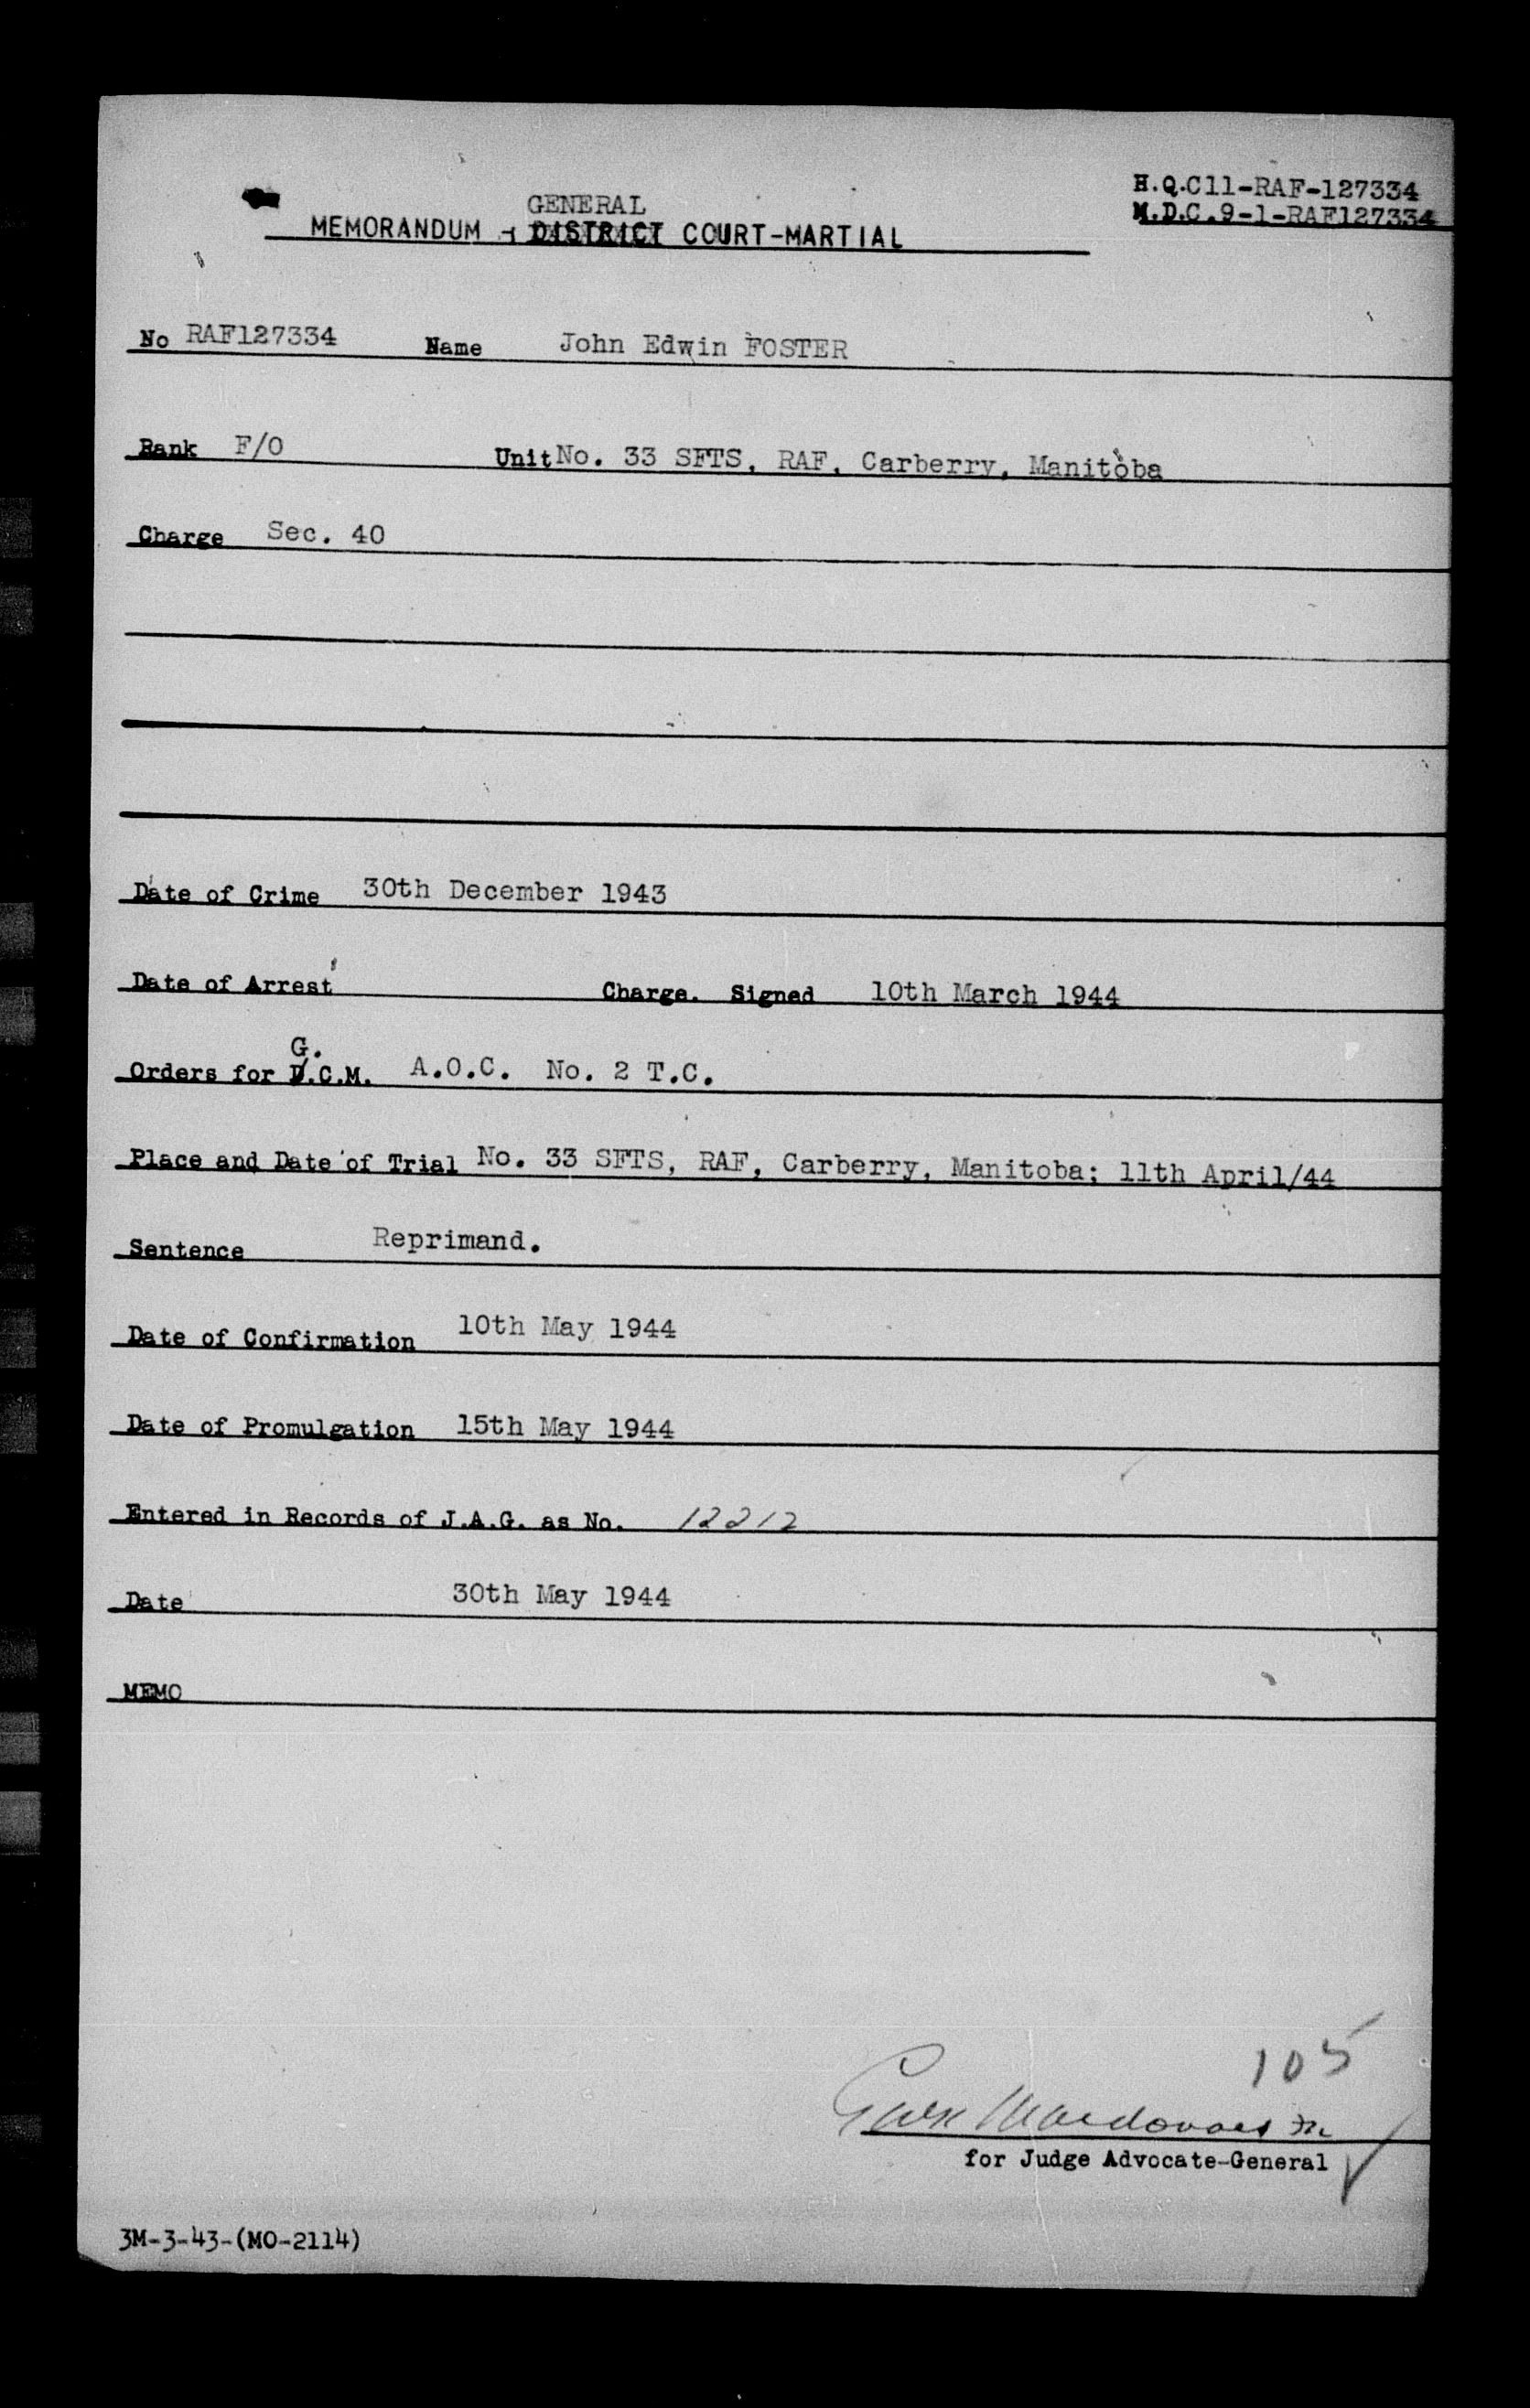 H.Q.C11-RAF-127334
M.D.C.9-1-RAF127334
GENERAL
MEMORANDUM - DISTRICT COURT-MARTIAL
No RAF127334 Name John Edwin FOSTER
Rank F/O Unit No. 33 SFTS, RAF, Carberry, Manitoba
Charge Sec. 40
Date of Crime 30th December 1943
Date of Arrest Charge. Signed 10th March 1944
G.
Orders for D.C.M. A.O.C. No. 2 T.C.
Place and Date of Trial No. 33 SFTS, RAF, Carberry, Manitoba; 11th April/44
Sentence Reprimand.
Date of Confirmation 10th May 1944
Date of Promulgation 15th May 1944
Entered in Records of J.A.G. as No. 12212
Date 30th May 1944
MEMO
105
for Judge Advocate-General
3M-3-43-(MO-2114)